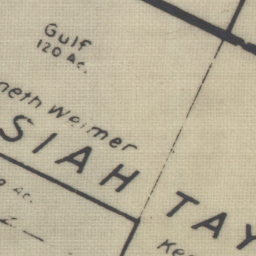 Gulf
120 Ac.
neth Weimer
SIAH TAY
Ac.
Ke